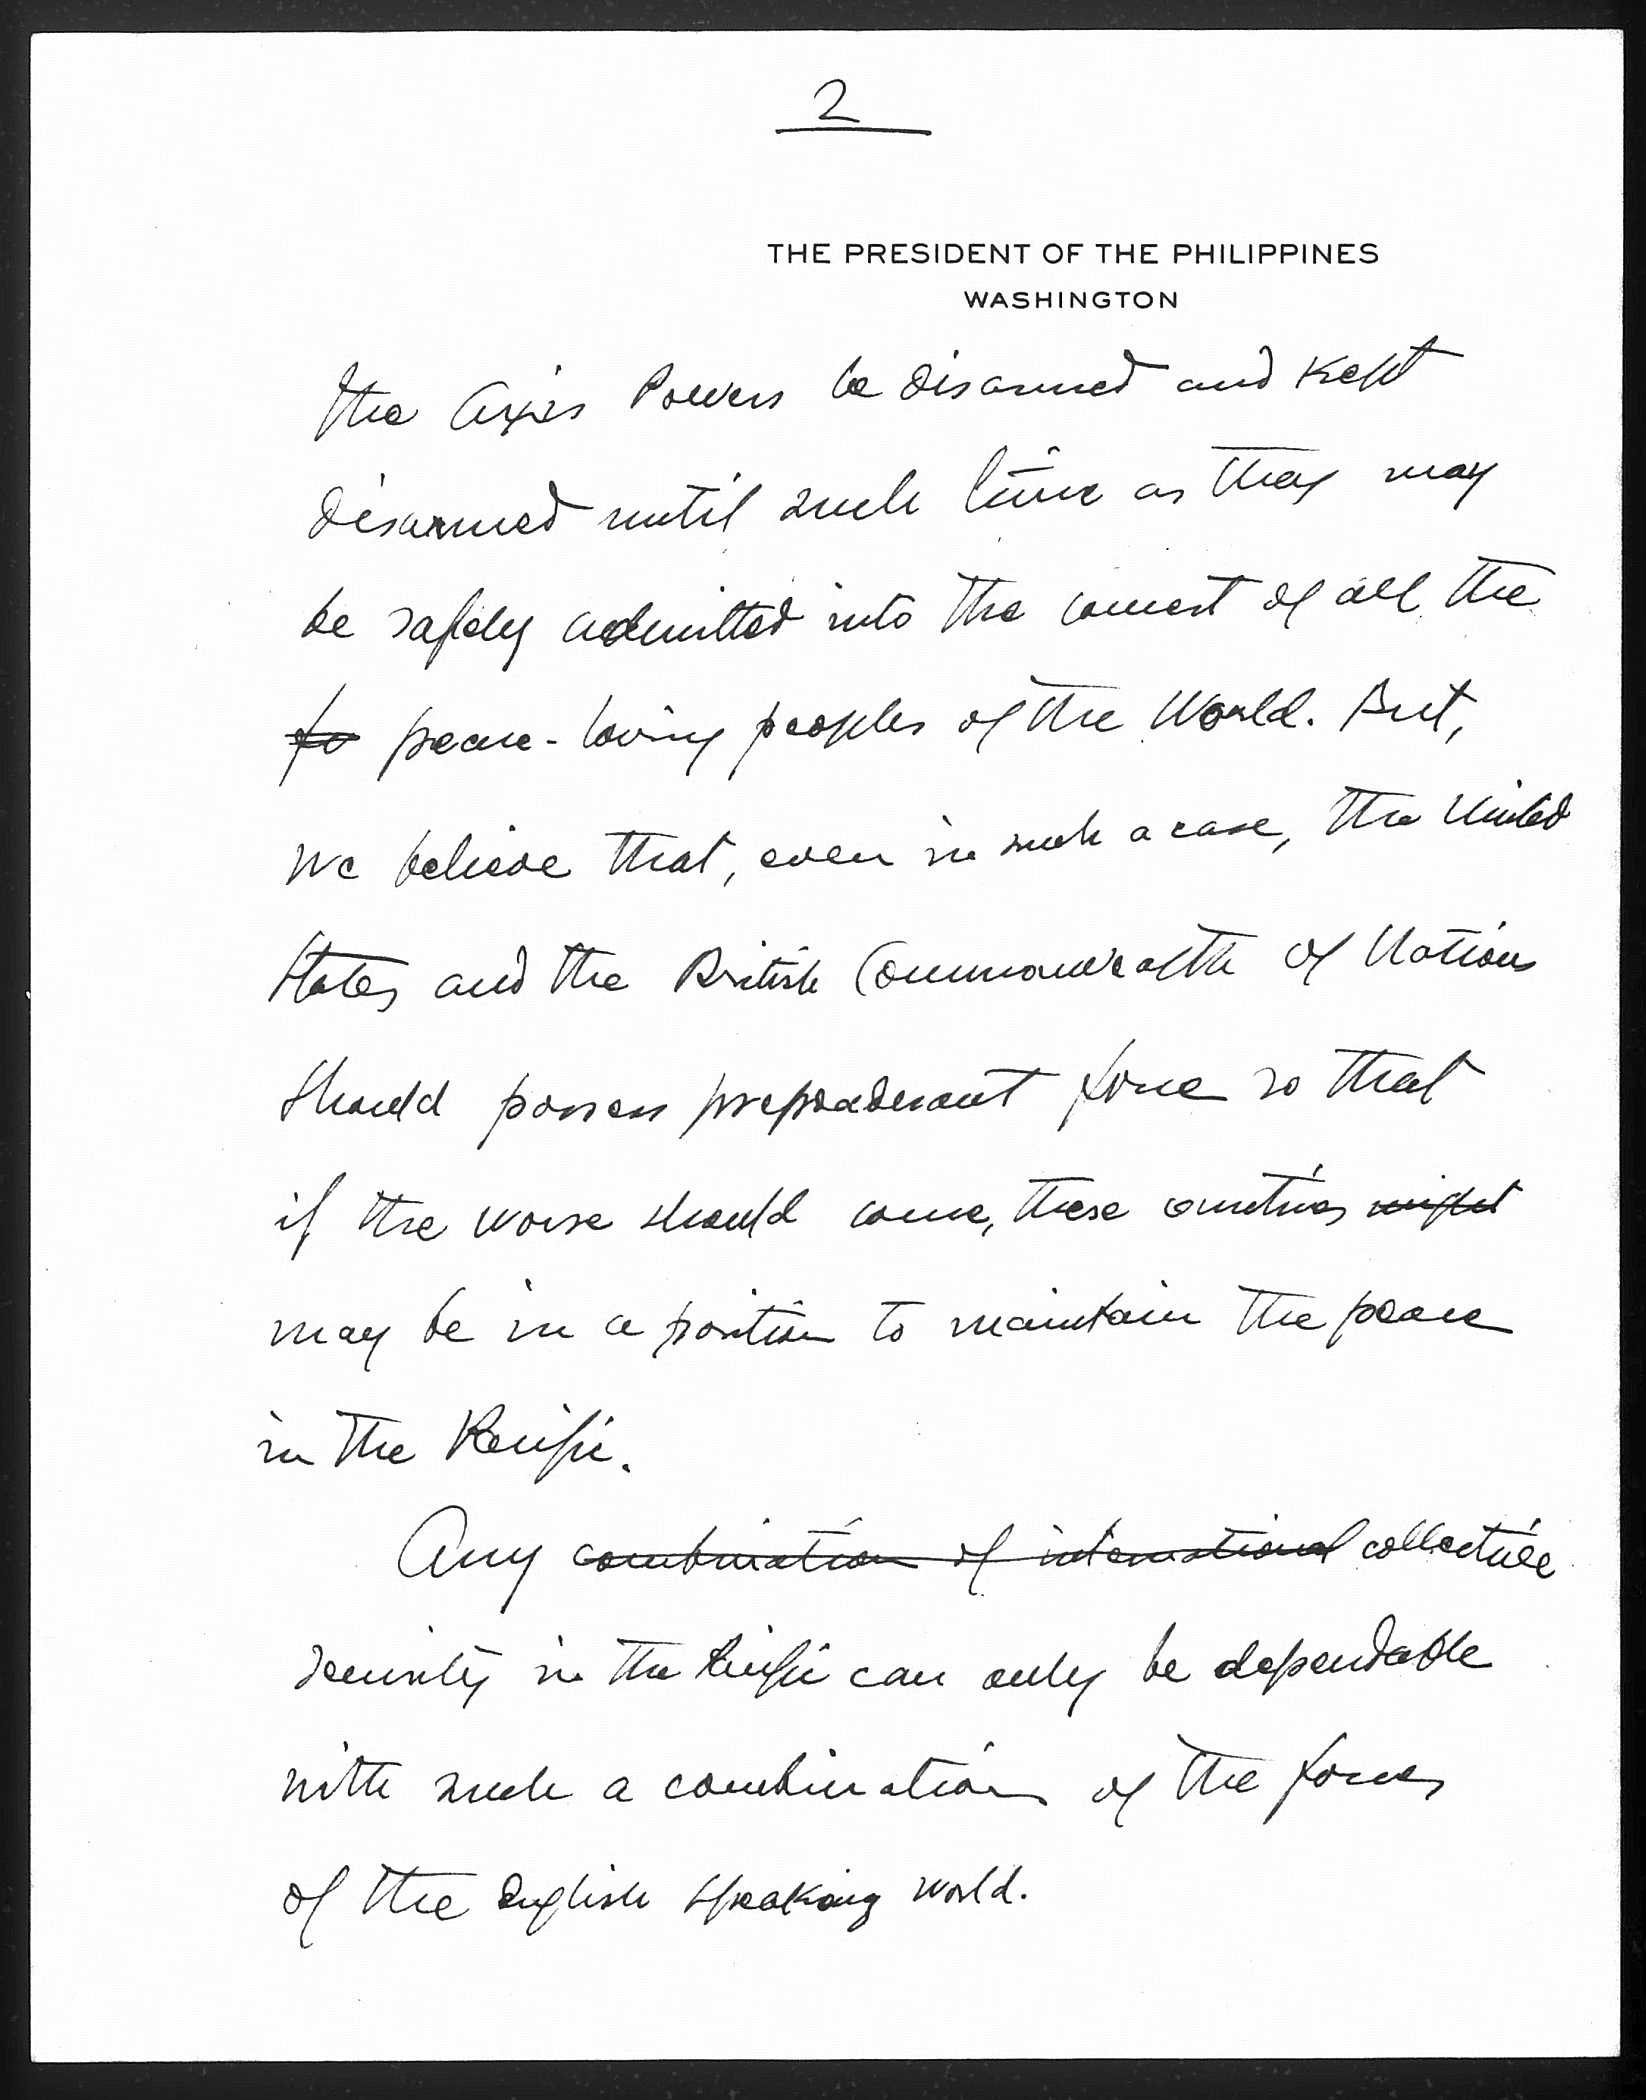 2
THE PRESIDENT OF THE PHILIPPINES
WASHINGTON
the Axis Powers be disarmed and kept
disarmed until such time as they may
be safely admitted into the concert of all the
fo peace-loving peoples of the World. But,
we believe that, even in such a case, the United
States and the British Commonwealth of Nations
should possess preponderant force so that
if the worse should come, these countries might
may be in a position to maintain the peace
in the Pacific.
Any combination of international collective
security in the Pacific can only be dependable
with such a combination of the forces
of the English speaking world.